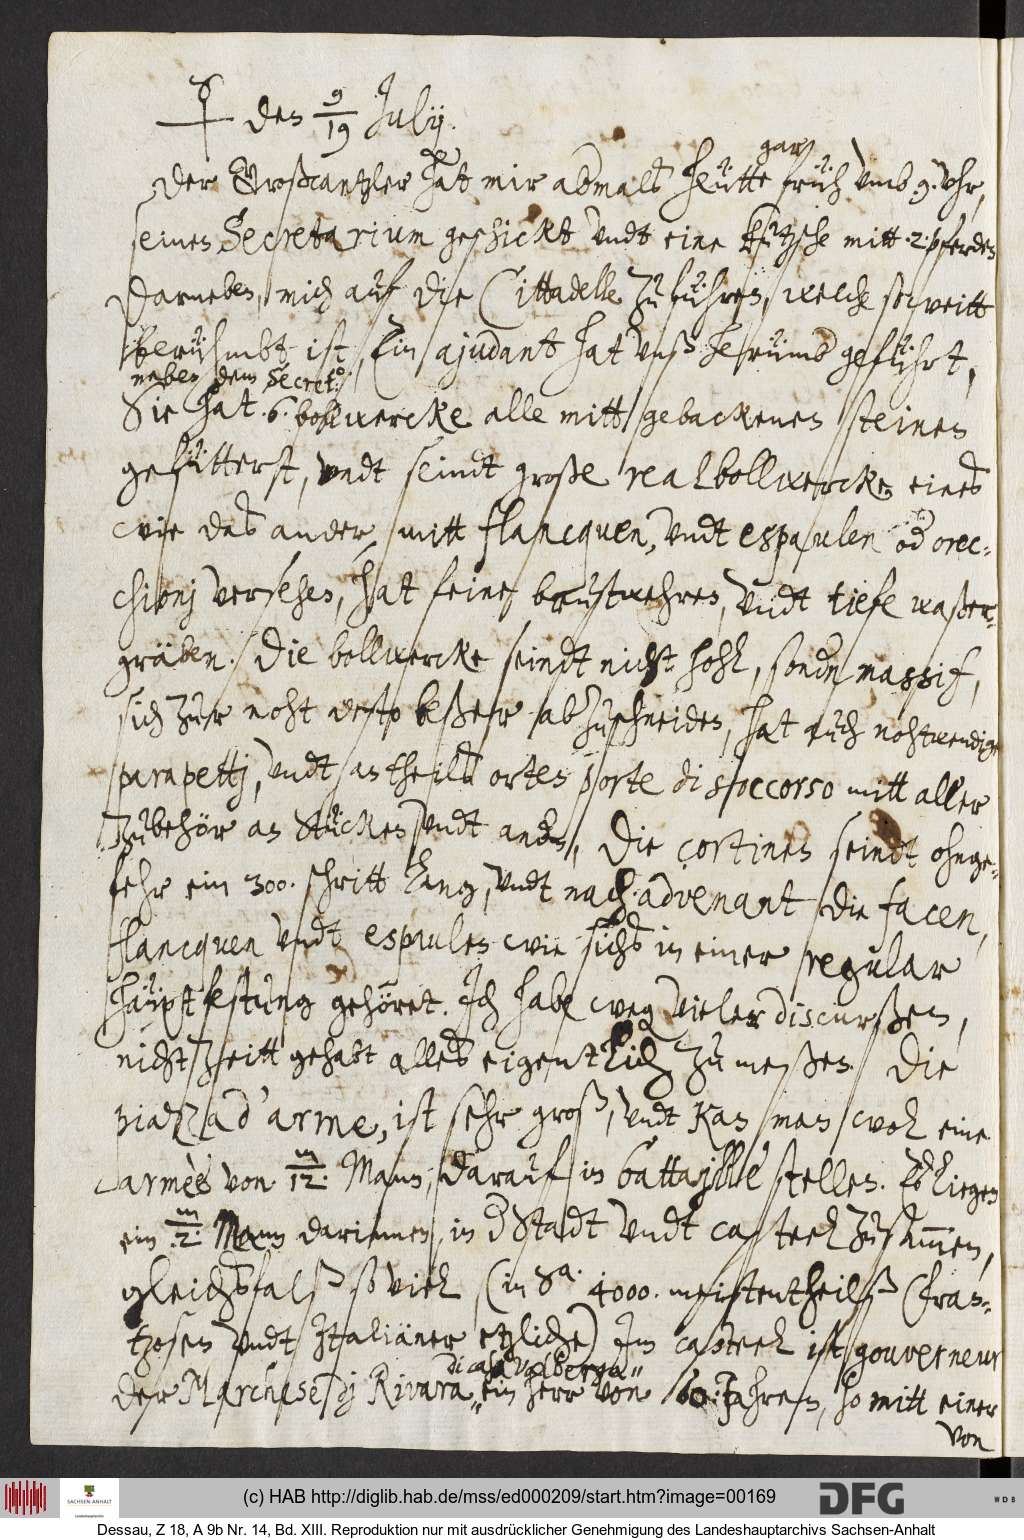 ♂ den 9/19 Julij.
Der Großcantzler hat mir abmalß heütte gar früh umb 9. uhr,
seinen Secretarium geschickt undt eine kutzsche mitt .2. pferden
darneben, mich auf die Cittadelle zu führen, welche so weitt
berühmbt ist, Ein ajudant hat unß herumb geführt,
neben dem Secret.º
Sie hat .6. bollwercke alle mitt gebackenen steinen
gefütterst, undt seindt große real bollwercke, eines
wie das ander, mitt flancquen, undt espaulen od orec-
chionj versehen, hat feine brustwehren, undt tiefe waßer-
gräben. Die bollwercke seindt nicht hohl, sondn massif,
sich zur noht desto beßer abzuschneiden, hat auch nohtwendige
parapettj, undt an theilß orten porte di soccorso mitt aller
zubehör an stücken undt andn, Die cortinen seindt ohnge-
fehr ein 300. schritt lang, undt nach advenant die facen,
flancquen undt espaulen wie sichs in einer regular
haüptfestung gehöret. Ich habe weg vieler discurßen,
nicht zeitt gehabt alles eigentlich zu meßen. Die
piazza d'arme, ist sehr groß, undt kan man wol eine
armèe von m/12. Mann, darauf in battaglie stellen. Es liegen
ein m/.2. Mann darinnen, in d Stadt undt casteel zusammen,
gleichsfalß so viel, (in Sa. 4000. meistentheilß Fran-
tzosen undt Italiäner etzliche) Im casteel ist gouverneur
der Marchese dj Rivara di casa Valberga ein herr von 60. Jahren, so mitt einer
von
(c) HAB http://diglib.hab.de/mss/ed000209/start.htm?image=00169
DFG
WDB
SACHSEN-ANHALT
Dessau, Z 18, A 9b Nr. 14, Bd. XIII. Reproduktion nur mit ausdrücklicher Genehmigung des Landeshauptarchivs Sachsen-Anhalt